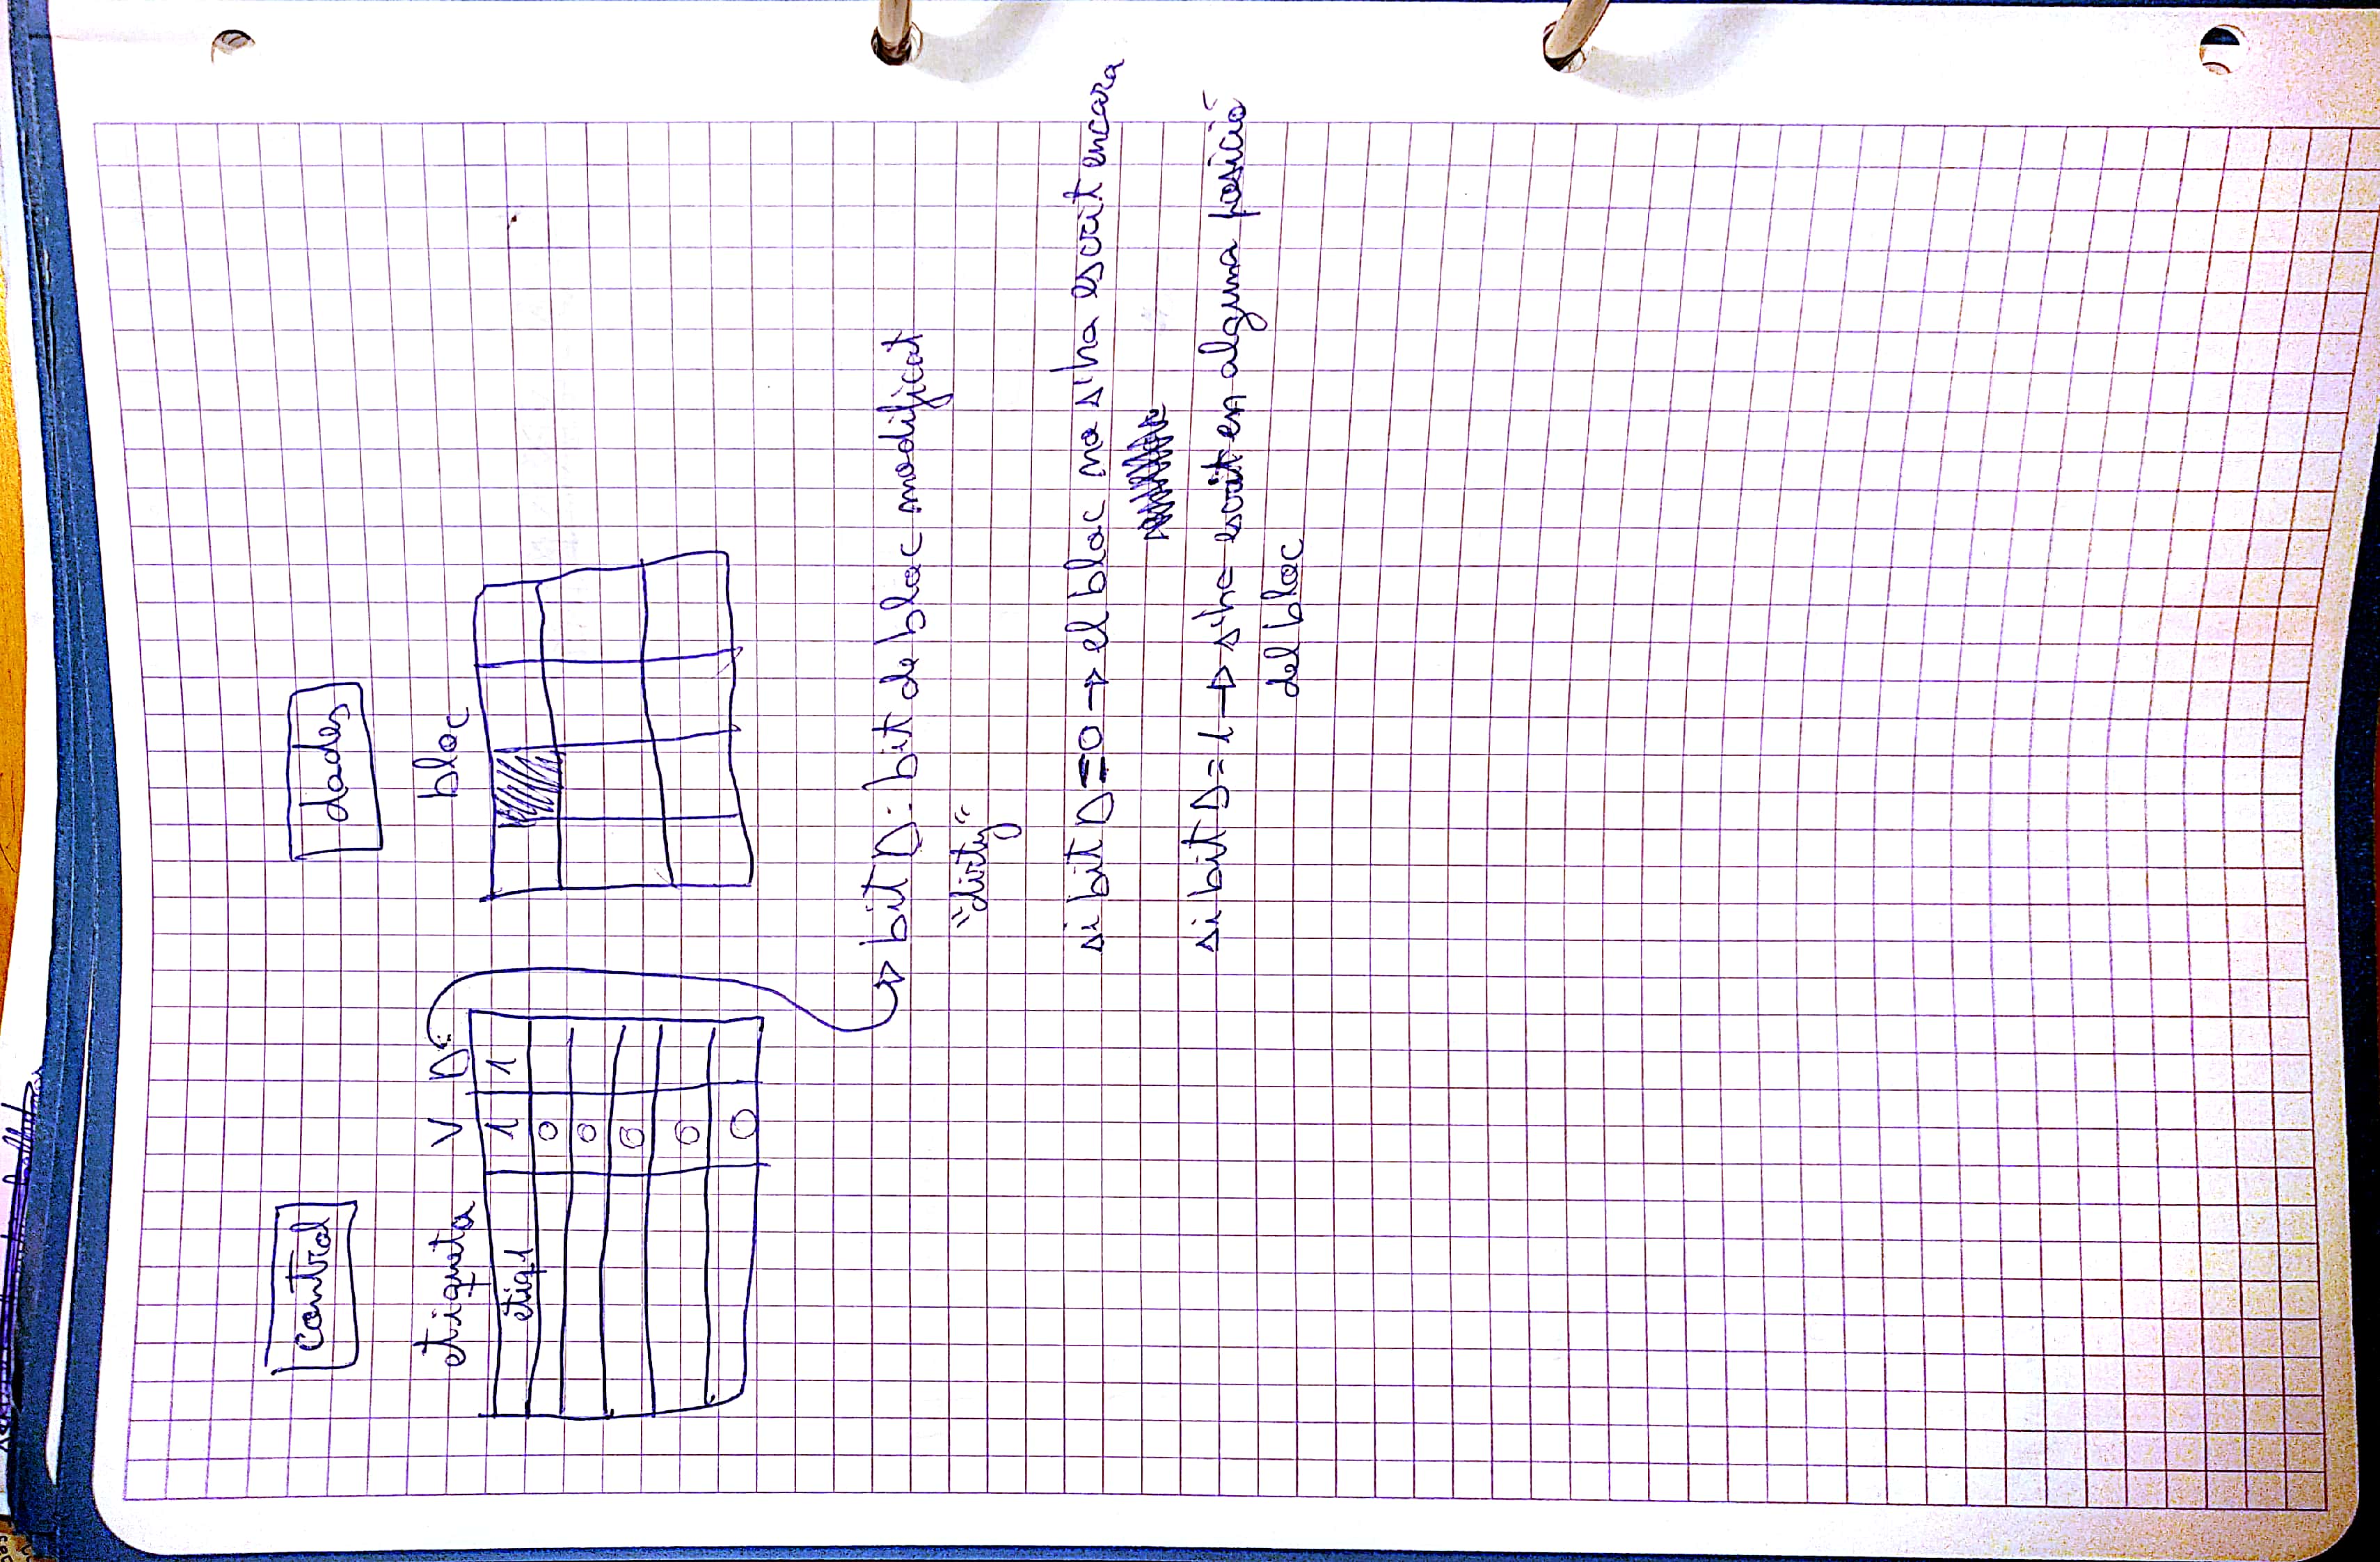 control
dades
etiqueta V D
bloc
etiq1 1 1
0
0
0
0
0
bit D: bit de bloc modificat
"dirty"
si bit D=0 → el bloc no s'ha escrit encara
si bit D=1 → s'ha escrit en alguna posició
del bloc